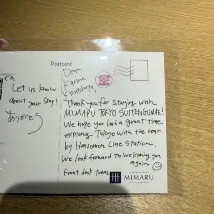 Postcard
Let us know
about your stay!
Dear
Thank you for staying with
MIMARU TOKYO SUITENGUMAE!
We hope you had a great time
exploring Tokyo with the
by Hanzomon Line Station.
We look forward to welcoming you
again
Front desk
MIMARU